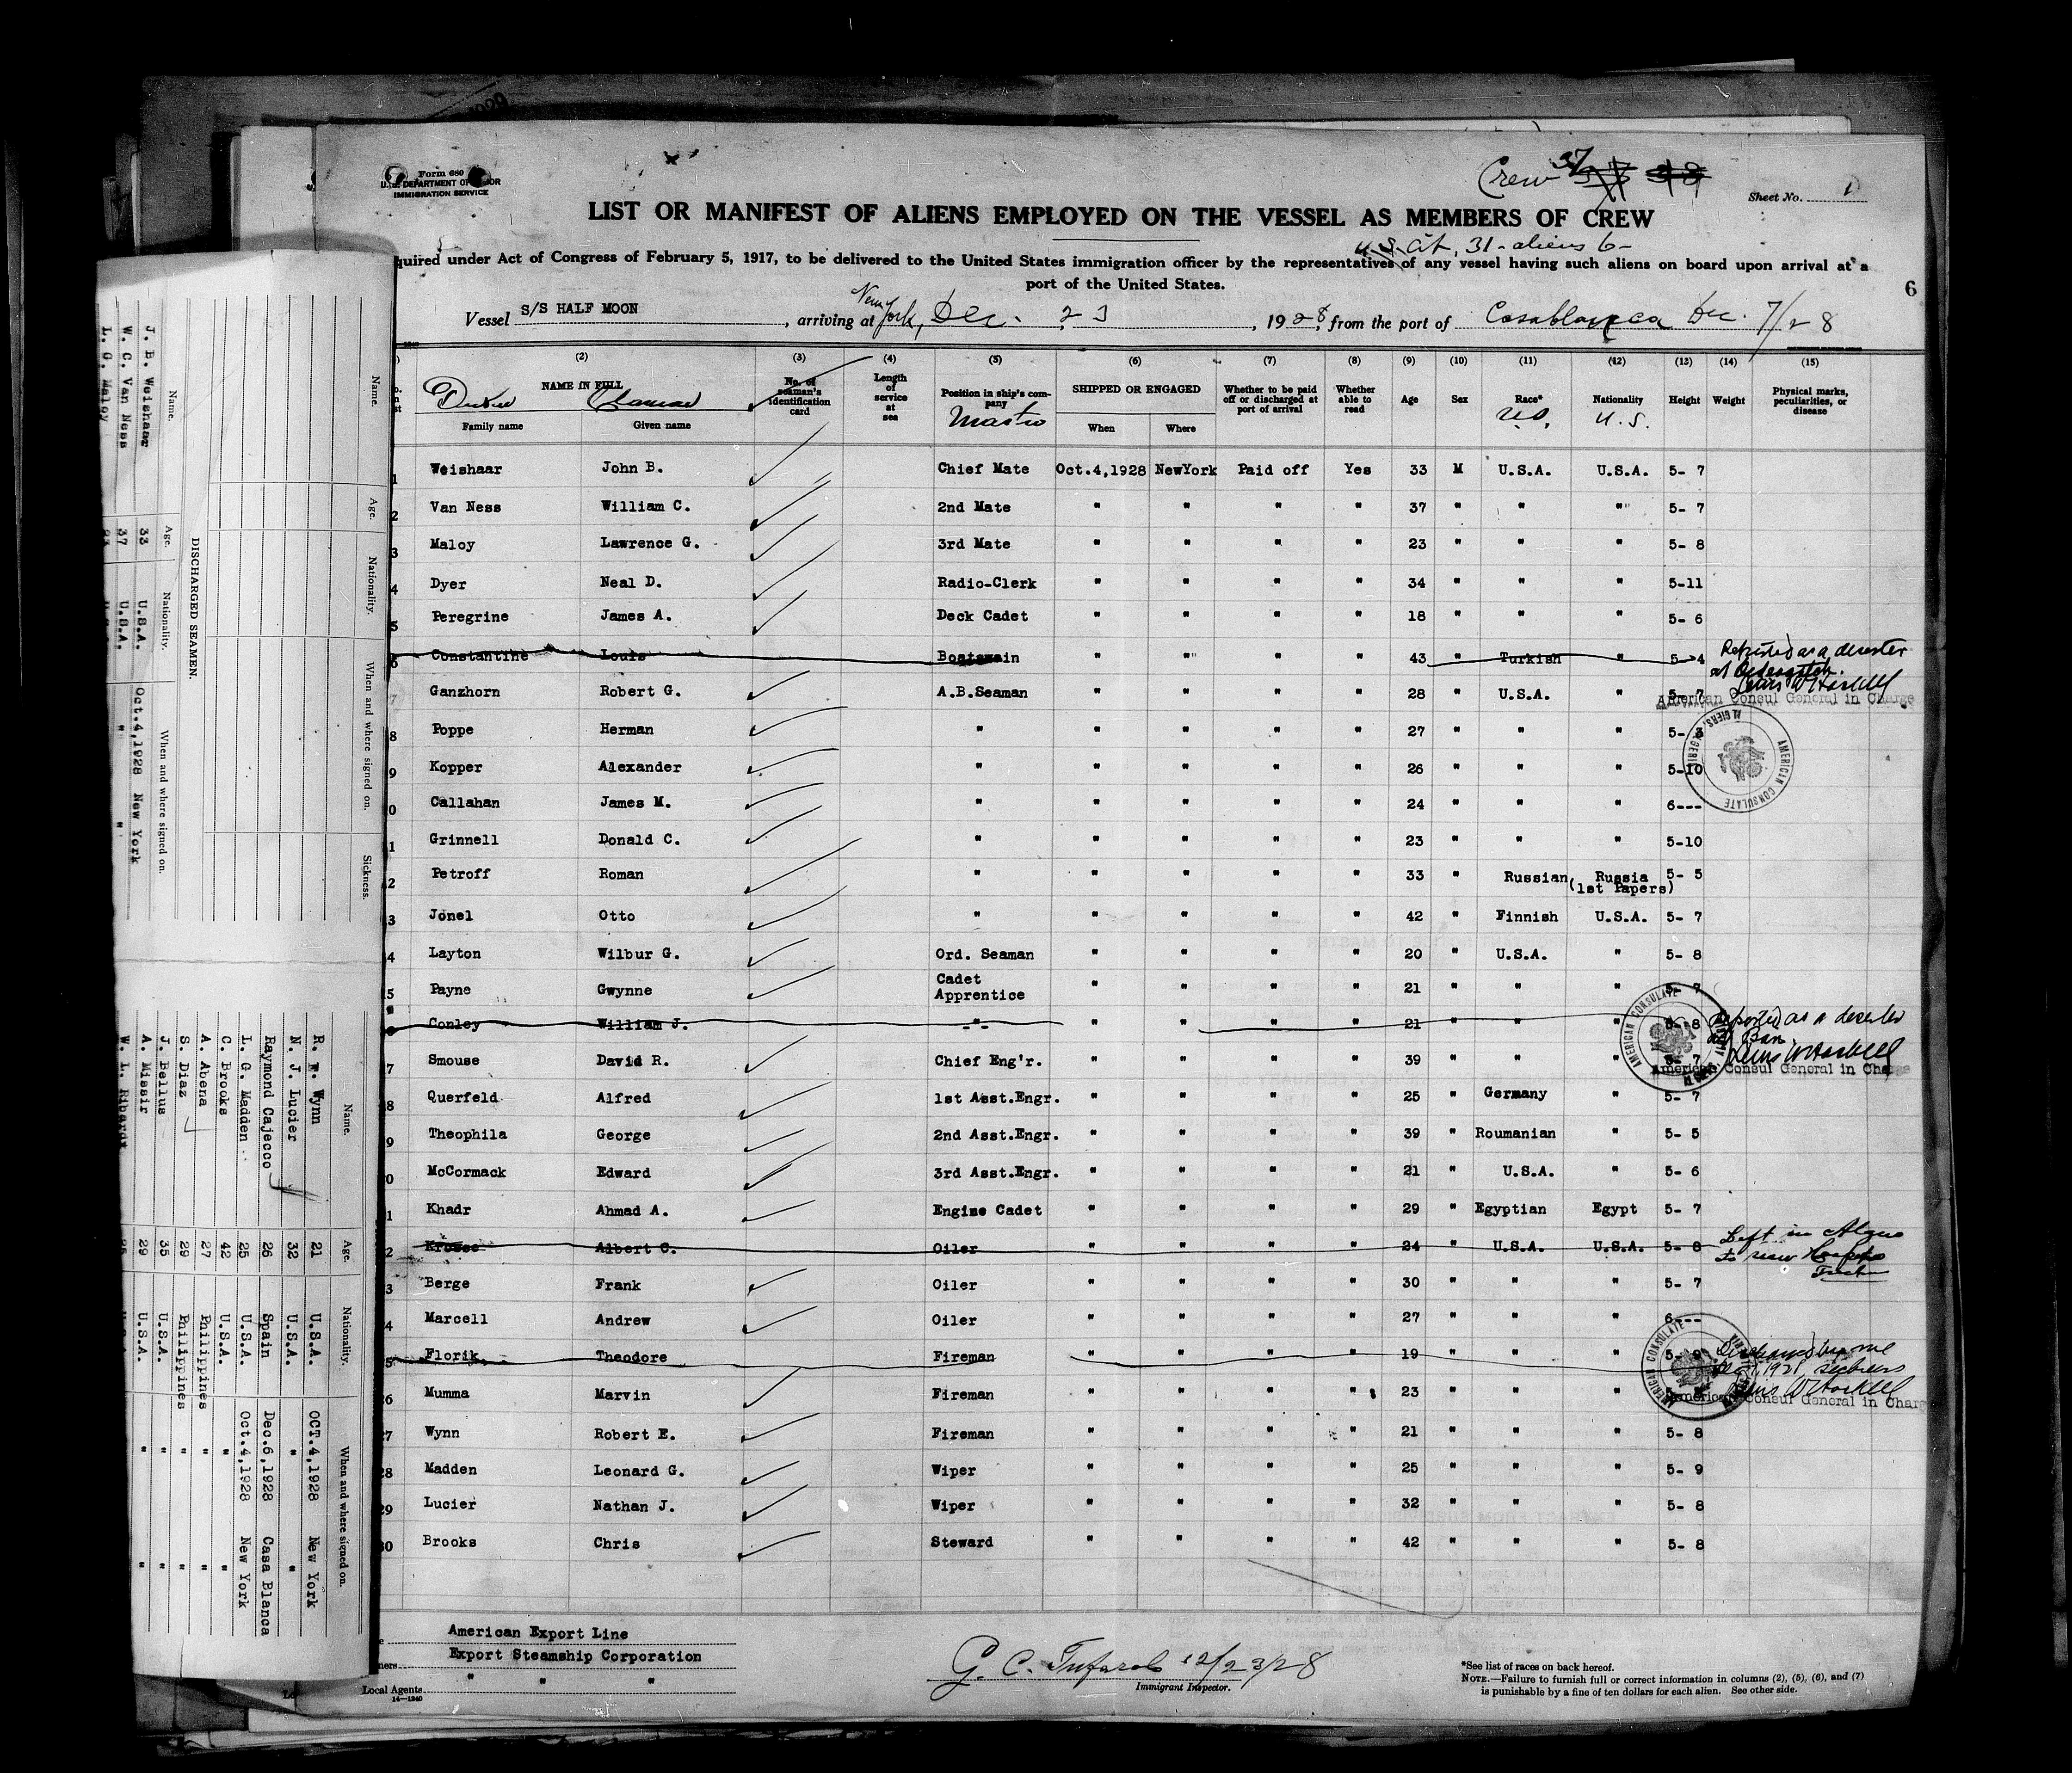 Form 680
U.S. DEPARTMENT OF LABOR
IMMIGRATION SERVICE
Crew 37
Sheet No. 1
LIST OR MANIFEST OF ALIENS EMPLOYED ON THE VESSEL AS MEMBERS OF CREW
U.S. Cit. 31 - aliens 6 -
quired under Act of Congress of February 5, 1917, to be delivered to the United States immigration officer by the representatives of any vessel having such aliens on board upon arrival at a
port of the United States.
6
Vessel S/S HALF MOON, arriving at New York, Dec. 23, 1928, from the port of Casablanca Dec. 7/28
(2) (3) (4) (5) (6) (7) (8) (9) (10) (11) (12) (13) (14) (15)
NAME IN FULL No. of seaman's identification card Length of service at sea Position in ship's company SHIPPED OR ENGAGED Whether to be paid off or discharged at port of arrival Whether able to read Age Sex Race* Nationality Height Weight Physical marks, peculiarities, or disease
Family name Given name When Where
U.S. U.S.
1 Weishaar John B. Chief Mate Oct.4,1928 NewYork Paid off Yes 33 M U.S.A. U.S.A. 5- 7
2 Van Ness William C. 2nd Mate " " " " 37 " " " 5- 7
3 Maloy Lawrence G. 3rd Mate " " " " 23 " " " 5- 8
4 Dyer Neal D. Radio-Clerk " " " " 34 " " " 5-11
5 Peregrine James A. Deck Cadet " " " " 18 " " " 5- 6
6 Constantine Louis Boatswain " " " " 43 " Turkish " 5- 4 Reported as a deserter
at
Lewis W Haskell
American Consul General in Charge
7 Ganzhorn Robert G. A.B.Seaman " " " " 28 " U.S.A. " 5- 7
8 Poppe Herman " " " " " 27 " " " 5-
9 Kopper Alexander " " " " " 26 " " " 5-10
AMERICAN CONSULATE ALGIERS, ALGERIA
0 Callahan James M. " " " " " 24 " " " 6---
1 Grinnell Donald C. " " " " " 23 " " " 5-10
2 Petroff Roman " " " " " 33 " Russian Russia (1st Papers) 5- 5
3 Jonel Otto " " " " " 42 " Finnish U.S.A. 5- 7
4 Layton Wilbur G. Ord. Seaman " " " " 20 " U.S.A. " 5- 8
5 Payne Gwynne Cadet Apprentice " " " " 21 " " " 5- 7
6 Conley William J. -"- " " " " 21 " " " 5- 8 Reported as a deserter
Lewis W Haskell
American Consul General in Charge
AMERICAN CONSULATE
7 Smouse David R. Chief Eng'r. " " " " 39 " " " 5- 7
8 Querfeld Alfred 1st Asst.Engr. " " " " 25 " Germany " 5- 7
9 Theophila George 2nd Asst.Engr. " " " " 39 " Roumanian " 5- 5
0 McCormack Edward 3rd Asst.Engr. " " " " 21 " U.S.A. " 5- 6
1 Khadr Ahmad A. Engine Cadet " " " " 29 " Egyptian Egypt 5- 7
2 Krosse Albert C. Oiler " " " " 24 " U.S.A. U.S.A. 5- 8 Left in
3 Berge Frank Oiler " " " " 30 " " " 5- 7
4 Marcell Andrew Oiler " " " " 27 " " " 6---
5 Florik Theodore Fireman " " " " 19 " " " 5- 9 Discharged by me
1928
Lewis W Haskell
American Consul General in Charge
AMERICAN CONSULATE
26 Mumma Marvin Fireman " " " " 23 " " "
27 Wynn Robert E. Fireman " " " " 21 " " " 5- 8
28 Madden Leonard G. Wiper " " " " 25 " " " 5- 9
29 Lucier Nathan J. Wiper " " " " 32 " " " 5- 8
30 Brooks Chris Steward " " " " 42 " " " 5- 8
American Export Line
Export Steamship Corporation
" " "
Local Agents
14-1240
12/23/28
Immigrant Inspector.
*See list of races on back hereof.
NOTE.—Failure to furnish full or correct information in columns (2), (5), (6), and (7)
is punishable by a fine of ten dollars for each alien. See other side.
Name. Age. Nationality. When and where signed on. Sickness.
DISCHARGED SEAMEN.
Name. Age. Nationality. When and where signed on.
J. B. Weishaar 33 U.S.A. Oct.4,1928 New York
W. C. Van Ness 37 U.S.A. " "
L. G. Maloy 23 U.S.A.
Name. Age. Nationality. When and where signed on.
R. E. Wynn 21 U.S.A. OCT.4,1928 New York
N. J. Lucier 32 U.S.A. " "
Raymond Cajecco 26 Spain Dec.6,1928 Casa Blanca
L. G. Madden 25 U.S.A. Oct.4,1928 New York
C. Brooks 42 U.S.A. " "
A. Abena 27 Philippines "
S. Diaz 29 Philippines " "
J. Bellus 35 U.S.A. " "
A. Missir 29 U.S.A. " "